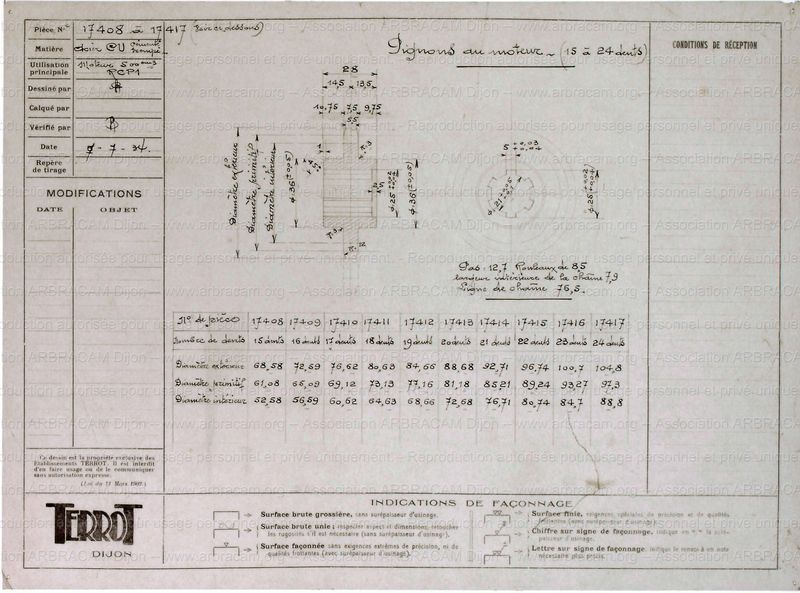 Pièce No 17408 à 17417
Matière
Utilisation principale Moteur 500 cm3 RCP1
Dessiné par
Calqué par
Vérifié par
Date 9-7-34.
Repère de tirage
MODIFICATIONS
DATE OBJET
Pignons du moteur _ (15 à 24 dents)
CONDITIONS DE RÉCEPTION
28
14,5 13,5
10,75 7,5 9,75
5,5
Diamètre extérieur
Diamètre primitif
Diamètre intérieur
Pas : 12,7 Rouleaux de 8,5
largeur intérieure de la chaîne 7,9
Ligne de chaîne 76,5.
No de pièce 17408 17409 17410 17411 17412 17413 17414 17415 17416 17417
Nombre de dents 15 dents 16 dents 17 dents 18 dents 19 dents 20 dents 21 dents 22 dents 23 dents 24 dents
Diamètre extérieur 68,58 72,59 76,62 80,63 84,66 88,68 92,71 96,74 100,7 104,8
Diamètre primitif 61,08 65,09 69,12 73,13 77,16 81,18 85,21 89,24 93,27 97,3
Diamètre intérieur 52,58 56,59 60,62 64,63 68,66 72,68 76,71 80,74 84,7 88,8
Ce dessin est la propriété exclusive des
Etablissements TERROT. Il est interdit
d'en faire usage ou de le communiquer
sans autorisation expresse.
(Loi du 11 Mars 1902.)
TERROT
DIJON
INDICATIONS DE FAÇONNAGE
Surface brute grossière, sans surépaisseur d'usinage.
Surface brute unie ; respecter aspect et dimensions, retoucher
les rugosités s'il est nécessaire (sans surépaisseur d'usinage).
Surface façonnée sans exigences extrêmes de précision, ni de
qualités frottantes (avec surépaisseur d'usinage).
Surface finie, exigences spéciales de précision et de qualités
frottantes (avec surépaisseur d'usinage).
Chiffre sur signe de façonnage, indique en
Lettre sur signe de façonnage, indique le renvoi à une note
nécessaire plus précise.
www.arbracam.org – Association ARBRACAM Dijon – Reproduction autorisée pour usage personnel et privé uniquement.